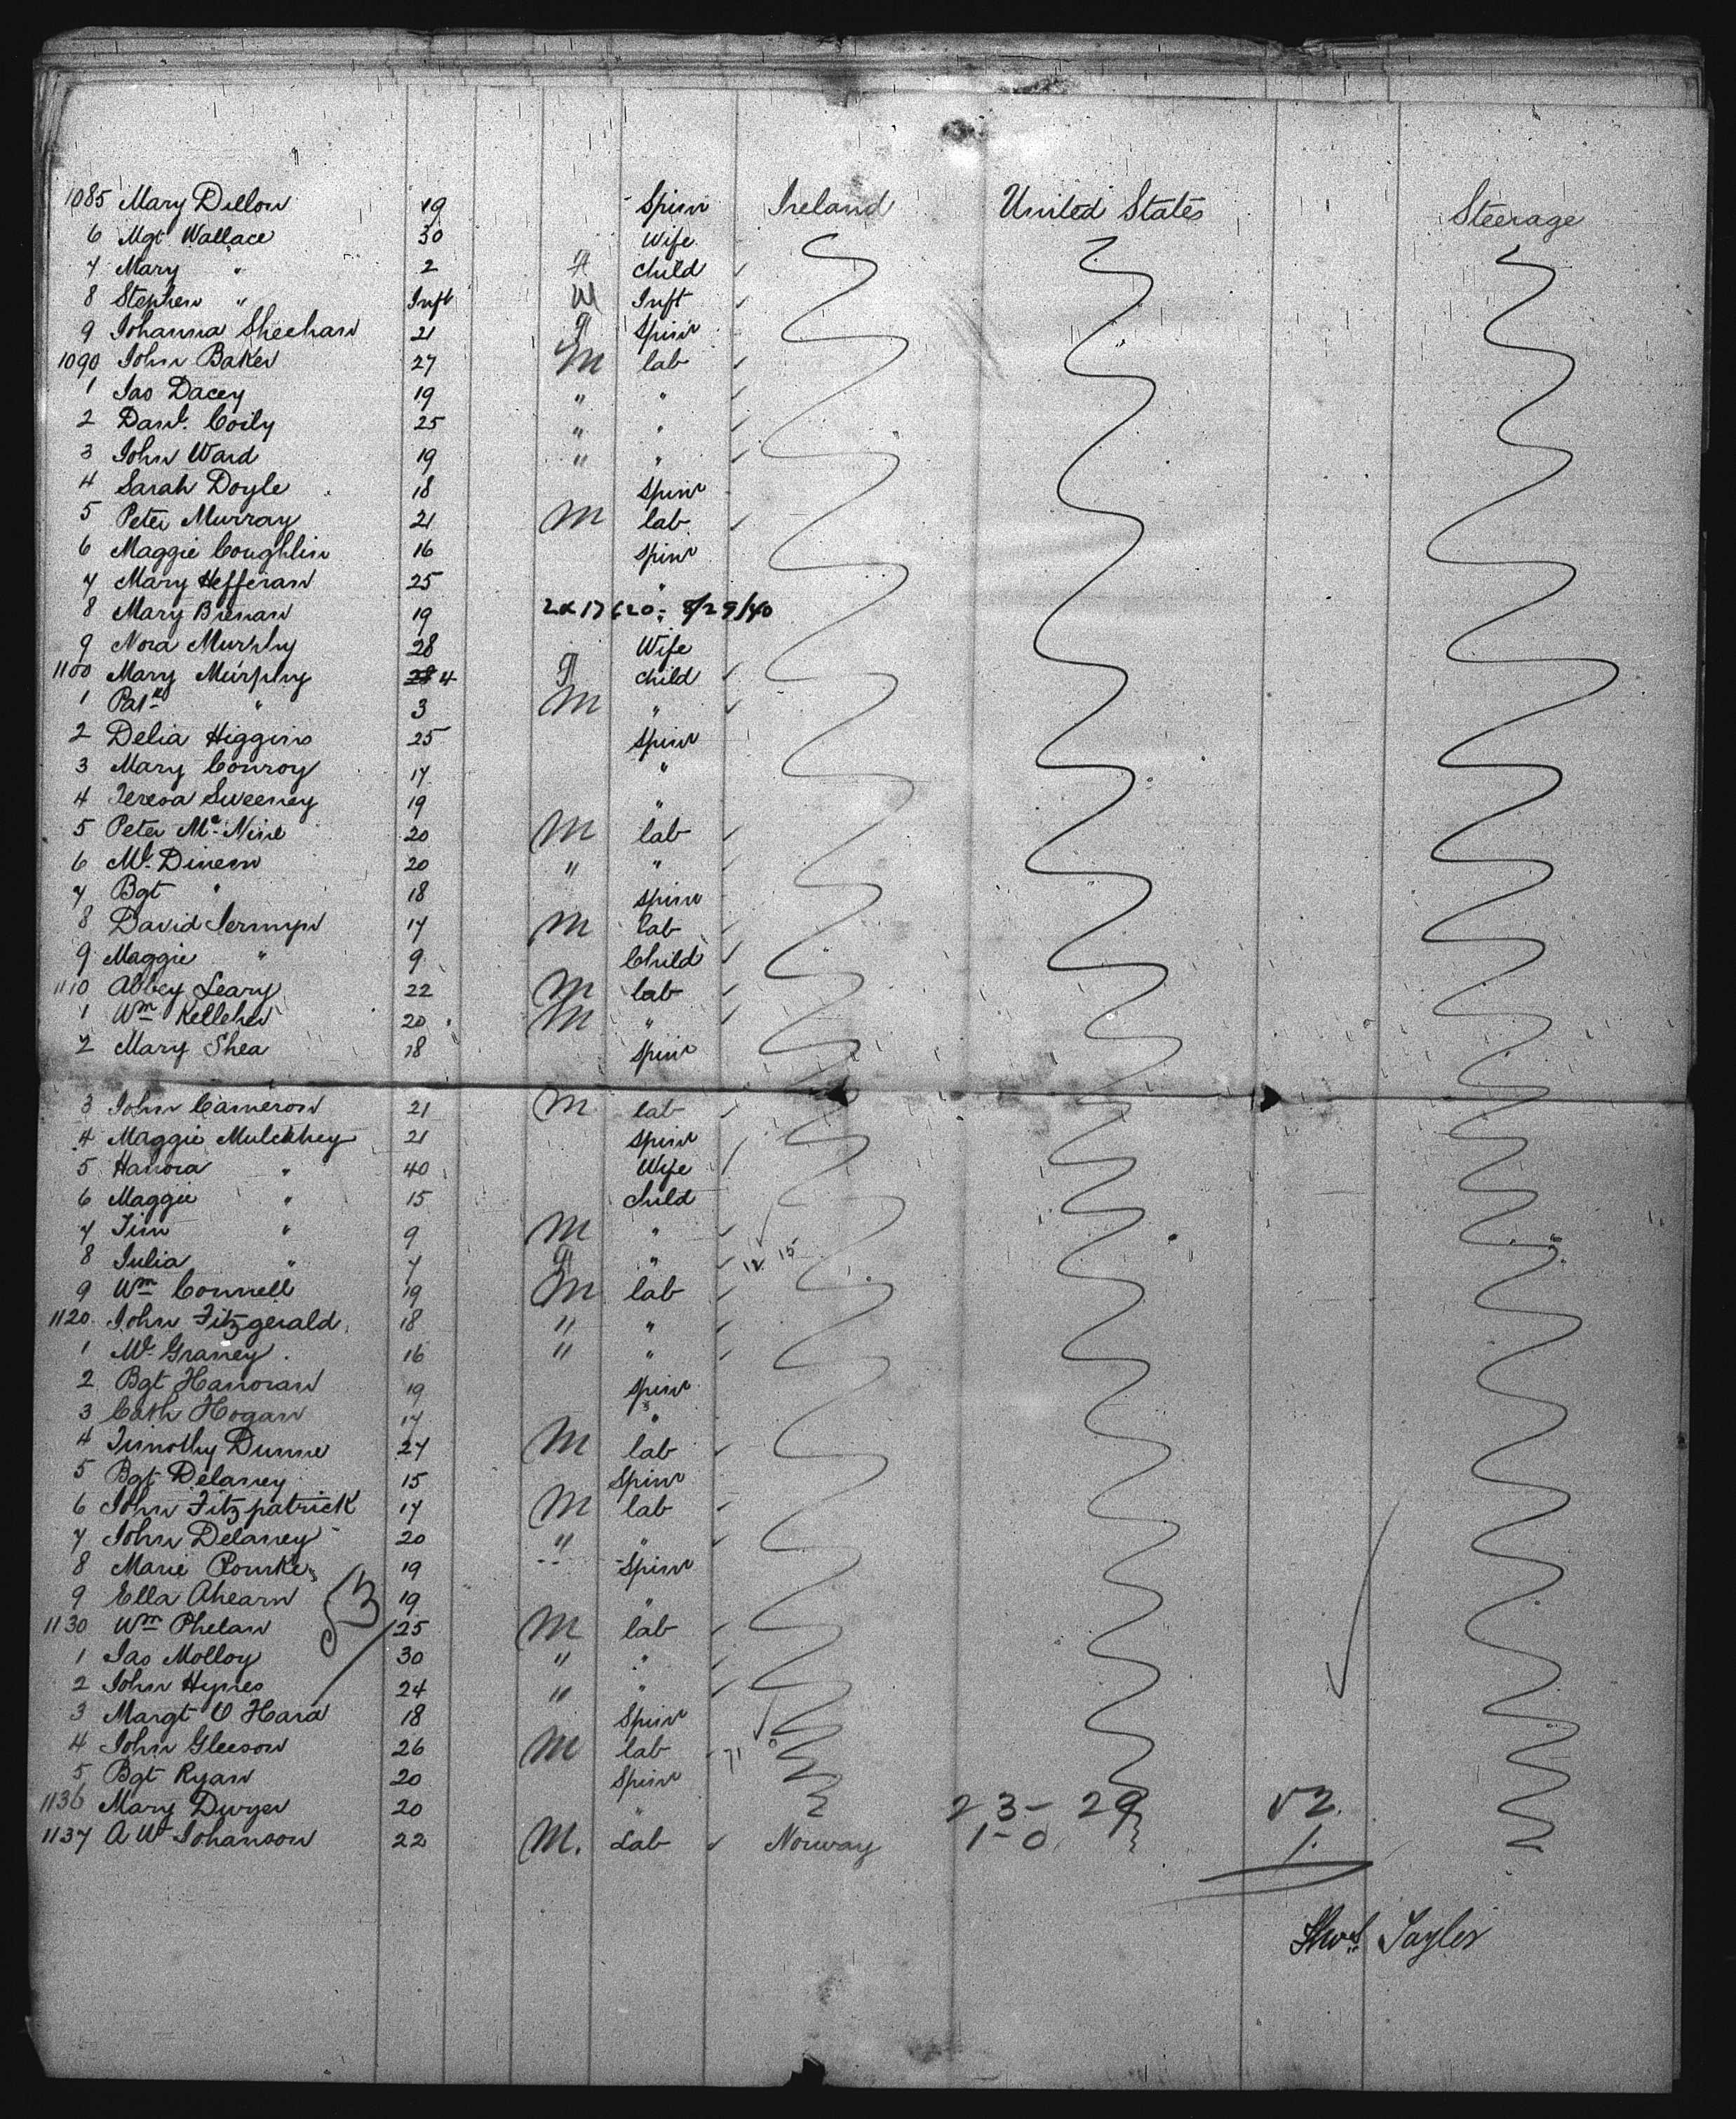 1085 Mary Dillon 19 Spinr Ireland United States Steerage
6 Mgt Wallace 30 Wife
7 Mary " 2 child
8 Stephen " Inft M Inft
9 Johanna Sheehan 21 Spinr
1090 John Baker 27 M lab
1 Jas Dacey 19 " "
2 Danl. Coily 25 " "
3 John Ward 19 " "
4 Sarah Doyle 18 Spinr
5 Peter Murray 21 M lab
6 Maggie Coughlin 16 Spinr
7 Mary Hefferan 25 "
8 Mary Brenan 19 2x17620- 8/29/40
9 Nora Murphy 28 Wife
1100 Mary Murphy 4 child
1 Patk " 3 M "
2 Delia Higgins 25 Spinr
3 Mary Conroy 17 "
4 Teresa Sweeney 19 "
5 Peter Mc Nine 20 M lab
6 Ml. Dineen 20 " "
7 Bgt " 18 Spinr
8 David Jermyn 17 M lab
9 Maggie " 9 Child
1110 Abbey Leary 22 M lab
1 Wm Kelleher 20 M "
2 Mary Shea 18 Spinr
3 John Cameron 21 M lab
4 Maggie Mulckhey 21 Spinr
5 Hanora " 40 Wife
6 Maggie " 15 child
7 Tim " 9 M "
8 Julia " 7 " 12 15
9 Wm Connell 19 M lab
1120 John Fitzgerald 18 " "
1 Ml. Graney 16 " "
2 Bgt Hanoran 19 Spinr
3 Cath Hogan 17 "
4 Timothy Dunne 27 M lab
5 Bgt Delaney 15 Spinr
6 John Fitzpatrick 17 M lab
7 John Delaney 20 " "
8 Marie Rourke 19 Spinr
9 Ella Ahearn 19 "
53
1130 Wm Phelan 25 M lab
1 Jas Molloy 30 " "
2 John Hynes 24 " "
3 Margt O Hara 18 Spinr
4 John Gleeson 26 M lab 71 0
5 Bgt Ryan 20 Spinr
1136 Mary Dwyer 20 " 23- 29 52.
1137 A W Johanson 22 M. Lab Norway 1-0 1.
Thos Tayler